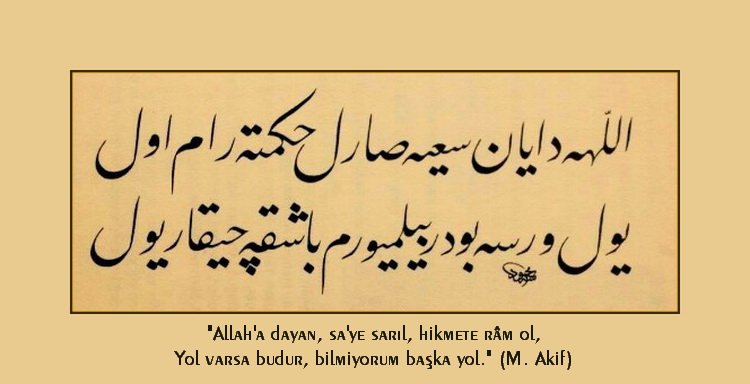 اللّهه دايان سعيه صارل حكمته رام اول
يول ورسه بودر بيلميورم باشقه چيقار يول
"Allah'a dayan, sa'ye sarıl, hikmete râm ol,
Yol varsa budur, bilmiyorum başka yol." (M. Akif)